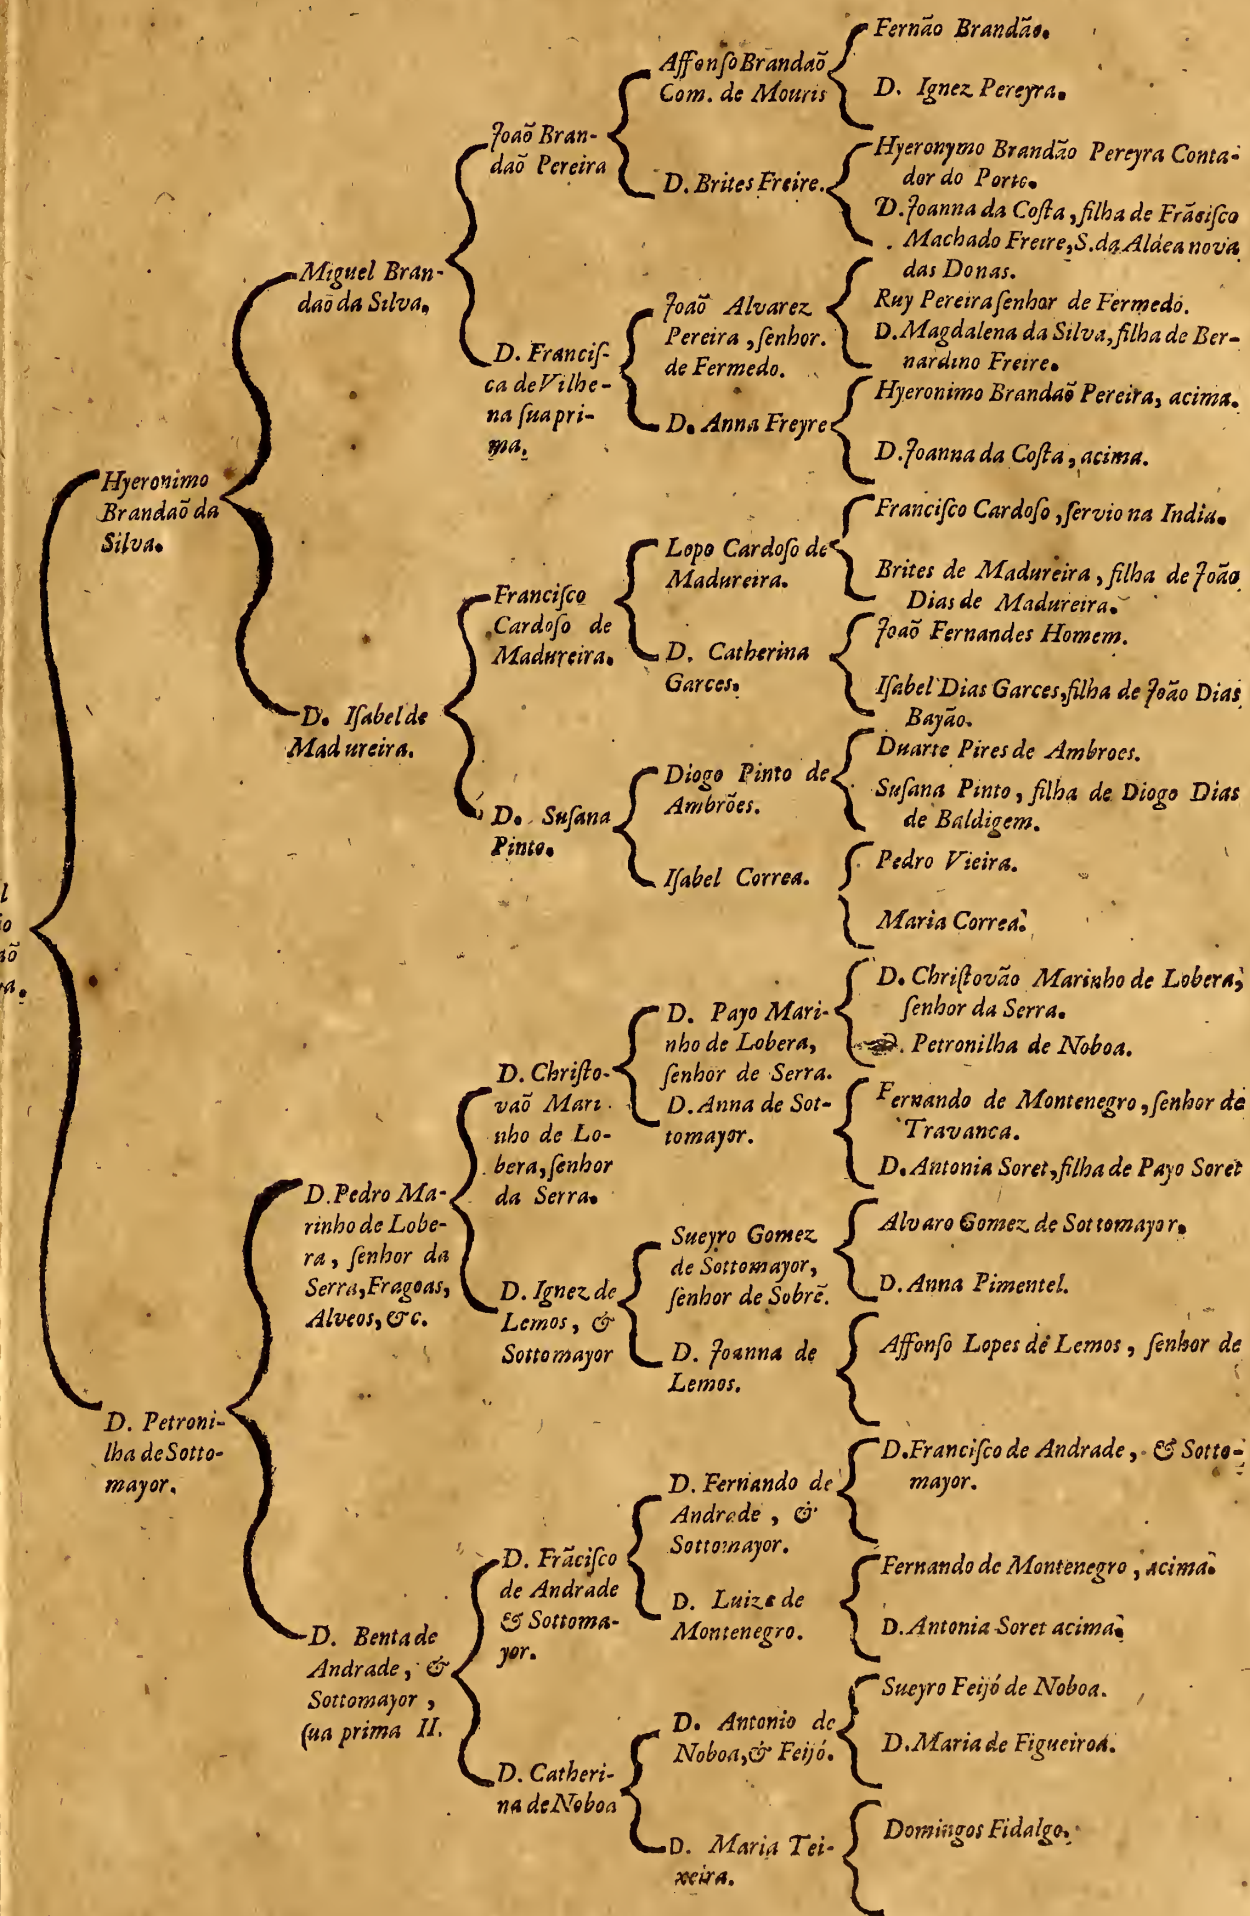 Hyeronimo
Brandaõ da
Silva.
D. Petroni-
lha de Sotto-
mayor.
Miguel Bran-
daõ da Silva,
D. Iſabel de
Madureira.
D. Pedro Ma-
rinho de Lobe-
ra, ſenhor da
Serra, Fragoas,
Alveos, &c.
D. Benta de
Andrade, &
Sottomayor,
ſua prima II.
Joaõ Bran-
daõ Pereira
D. Franciſ-
ca de Vilhe-
na ſua pri-
ma.
Franciſco
Cardoſo de
Madureira.
D. Suſana
Pinto.
D. Chriſto-
vaõ Mari
nho de Lo-
bera, ſenhor
da Serra.
D. Ignez de
Lemos, &
Sottomayor
D. Frãciſco
de Andrade
& Sottoma-
yor.
D. Catheri-
na de Noboa
Affonſo Brandaõ
Com. de Mouris
D. Brites Freire.
Joaõ Alvarez
Pereira, ſenhor.
de Fermedo.
D. Anna Freyre
Lopo Cardoſo de
Madureira.
D. Catherina
Garces.
Diogo Pinto de
Ambrões.
Iſabel Correa.
D. Payo Mari-
nho de Lobera,
ſenhor de Serra.
D. Anna de Sot-
tomayor.
Sueyro Gomez
de Sottomayor,
ſenhor de Sobrẽ.
D. Joanna de
Lemos.
D. Fernando de
Andrade, &
Sottomayor.
D. Luiza de
Montenegro.
D. Antonio de
Noboa, & Feijó.
D. Maria Tei-
xeira.
Fernão Brandão.
D. Ignez Pereyra.
Hyeronymo Brandão Pereyra Conta-
dor do Porto.
D. Joanna da Coſta, filha de Frãciſco
Machado Freire, S. da Aldea nova
das Donas.
Ruy Pereira ſenhor de Fermedo.
D. Magdalena da Silva, filha de Ber-
nardino Freire.
Hyeronimo Brandaõ Pereira, acima.
D. Joanna da Coſta, acima.
Franciſco Cardoſo, ſervio na India.
Brites de Madureira, filha de João
Dias de Madureira.
Joaõ Fernandes Homem.
Iſabel Dias Garces, filha de João Dias
Bayão.
Duarte Pires de Ambroes.
Suſana Pinto, filha de Diogo Dias
de Baldigem.
Pedro Vieira.
Maria Correa.
D. Chriſtovão Marinho de Lobera,
ſenhor da Serra.
D. Petronilha de Noboa.
Fernando de Montenegro, ſenhor de
Travanca.
D. Antonia Soret, filha de Payo Soret
Alvaro Gomez de Sottomayor.
D. Anna Pimentel.
Affonſo Lopes de Lemos, ſenhor de
D. Franciſco de Andrade, & Sotto-
mayor.
Fernando de Montenegro, acima.
D. Antonia Soret acima.
Sueyro Feijó de Noboa.
D. Maria de Figueiroa.
Domingos Fidalgo.